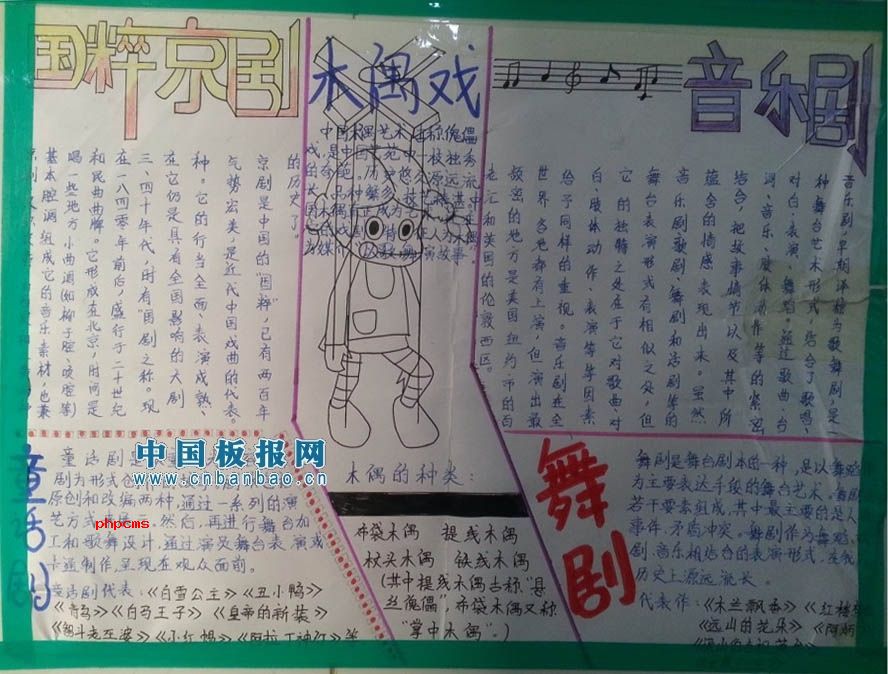 国粹京剧
京剧是中国的"国粹",已有两百年
的历史了。
气势宏美,是近代中国戏曲的代表。
种。它的行当全面、表演成熟、
在它仍是具有全国影响的大剧
三、四十年代,时有"国剧"之称。现
在一八四零年前后,盛行于二十世纪
和民曲曲牌。它形成在北京,时间是
唱一些地方小曲调(如柳子腔、吱腔等)
基本腔调组成它的音乐素材,也兼
木偶戏
木偶的种类:
布袋木偶 提线木偶
杖头木偶 铁线木偶
(其中提线木偶古称"悬
丝傀儡",布袋木偶又称
"掌中木偶"。)
音乐剧
音乐剧,早期译称为歌舞剧,是一
种舞台艺术形式,结合了歌唱、
对白、表演、舞蹈。通过歌曲、台
词、音乐、肢体动作等的紧密
结合,把故事情节以及其中所
蕴含的情感表现出来。虽然
音乐剧歌剧、舞剧和话剧等的
舞台表演形式有相似之处,但
它的独特之处在于它对歌曲、对
白、肢体动作、表演等等因素
给予同样的重视。音乐剧在全
世界各地都有上演,但演出最
频密的地方是美国纽约市的百
老汇和英国的伦敦西区。
童话剧
童话剧是
剧为形式
原创和改编两种,通过一系列的演
艺方式 然后,再进行舞台加
工和歌舞设计,通过演员舞台表演或
卡通制作,呈现在观众面前。
童话剧代表:《白雪公主》《丑小鸭》
《青鸟》《白马王子》《皇帝的新装》
《小红帽》《阿拉丁神灯》等
舞剧
舞剧是舞台剧本的一种,是以舞蹈
为主要表达手段的舞台艺术。舞剧
若干要素组成,其中最主要的是人
事件、矛盾冲突。舞剧作为舞蹈、
剧、音乐相结合的表演形式,在我
历史上源远流长。
代表作:《木兰飘香》《红楼
《远山的花朵》《阿
中国板报网
www.cnbanbao.cn
phpcms